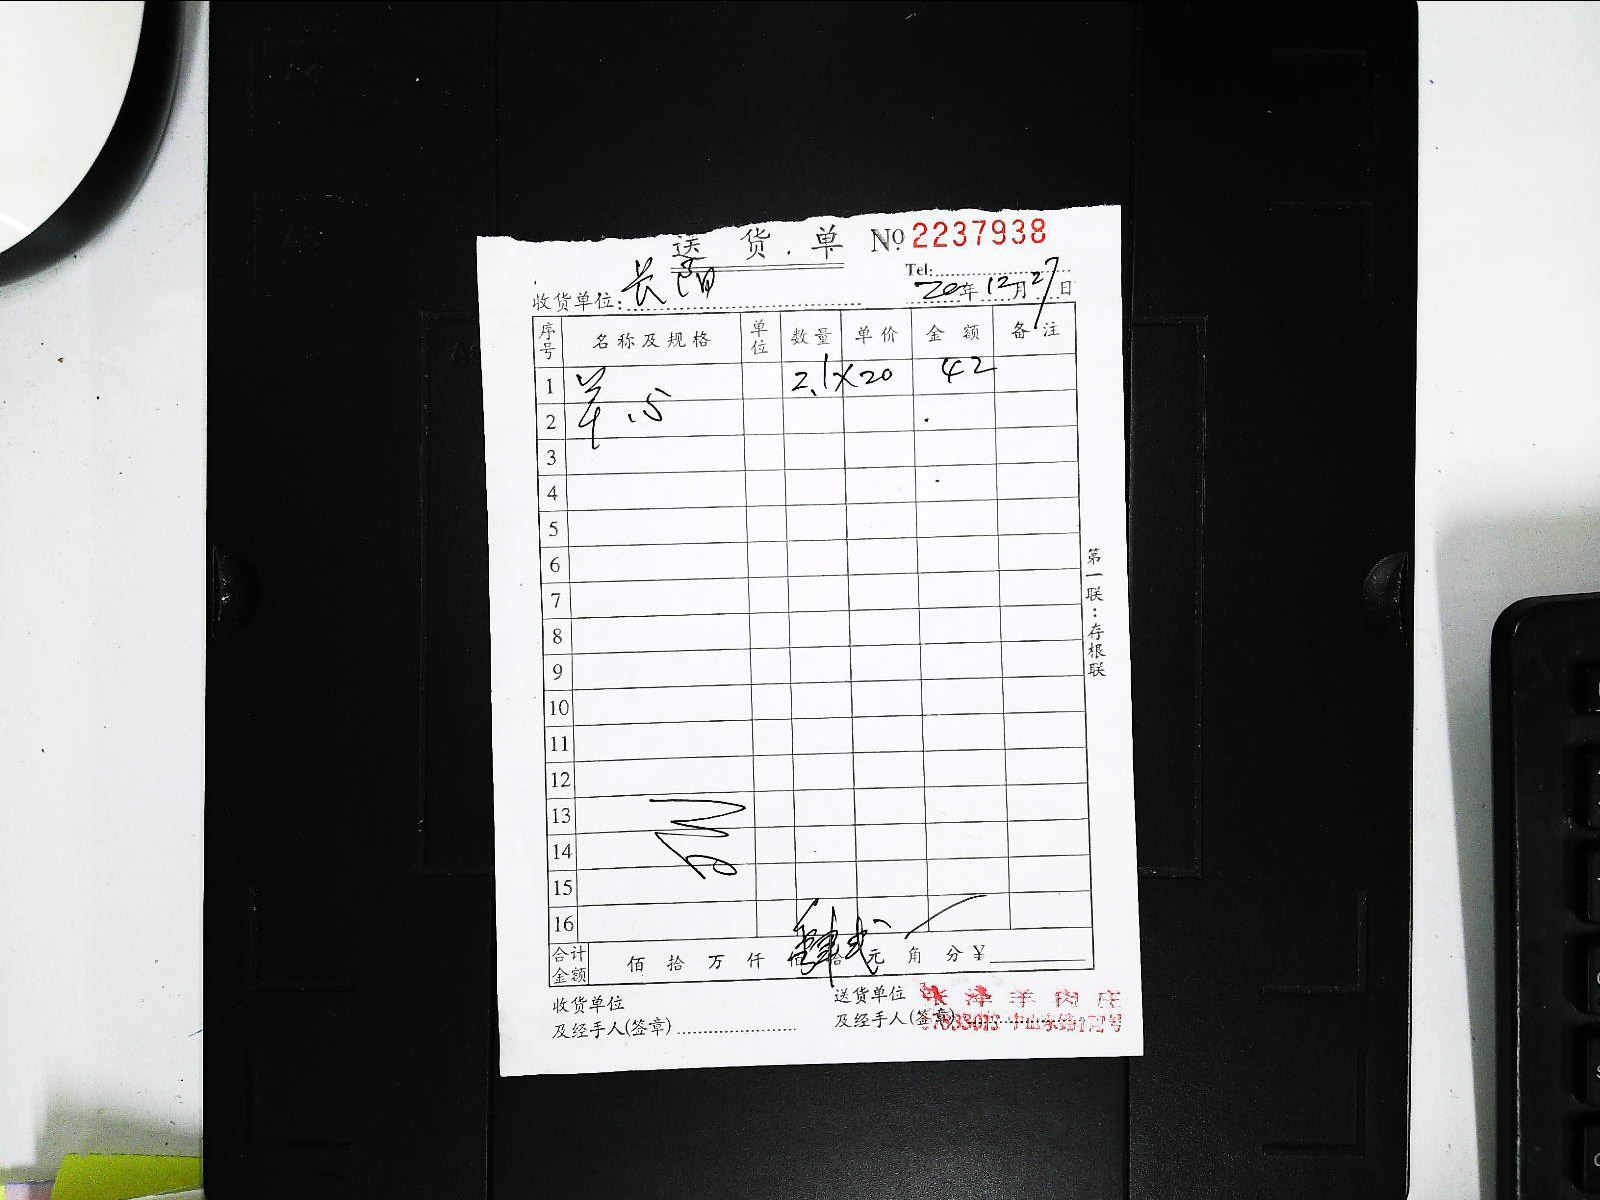 送货单 № 2237938
Tel:
收货单位: 长阳 20年12月27日
序号 名称及规格 单位 数量 单价 金额 备注
1 羊 2.1×20 42
2
3
4
5
6
7
8
9
10
11
12
13
14
15
16
合计金额 佰拾万仟佰拾元角分¥ 肆 贰
收货单位 送货单位
及经手人(签章) 及经手人(签章)
羊肉庄
第一联:存根联